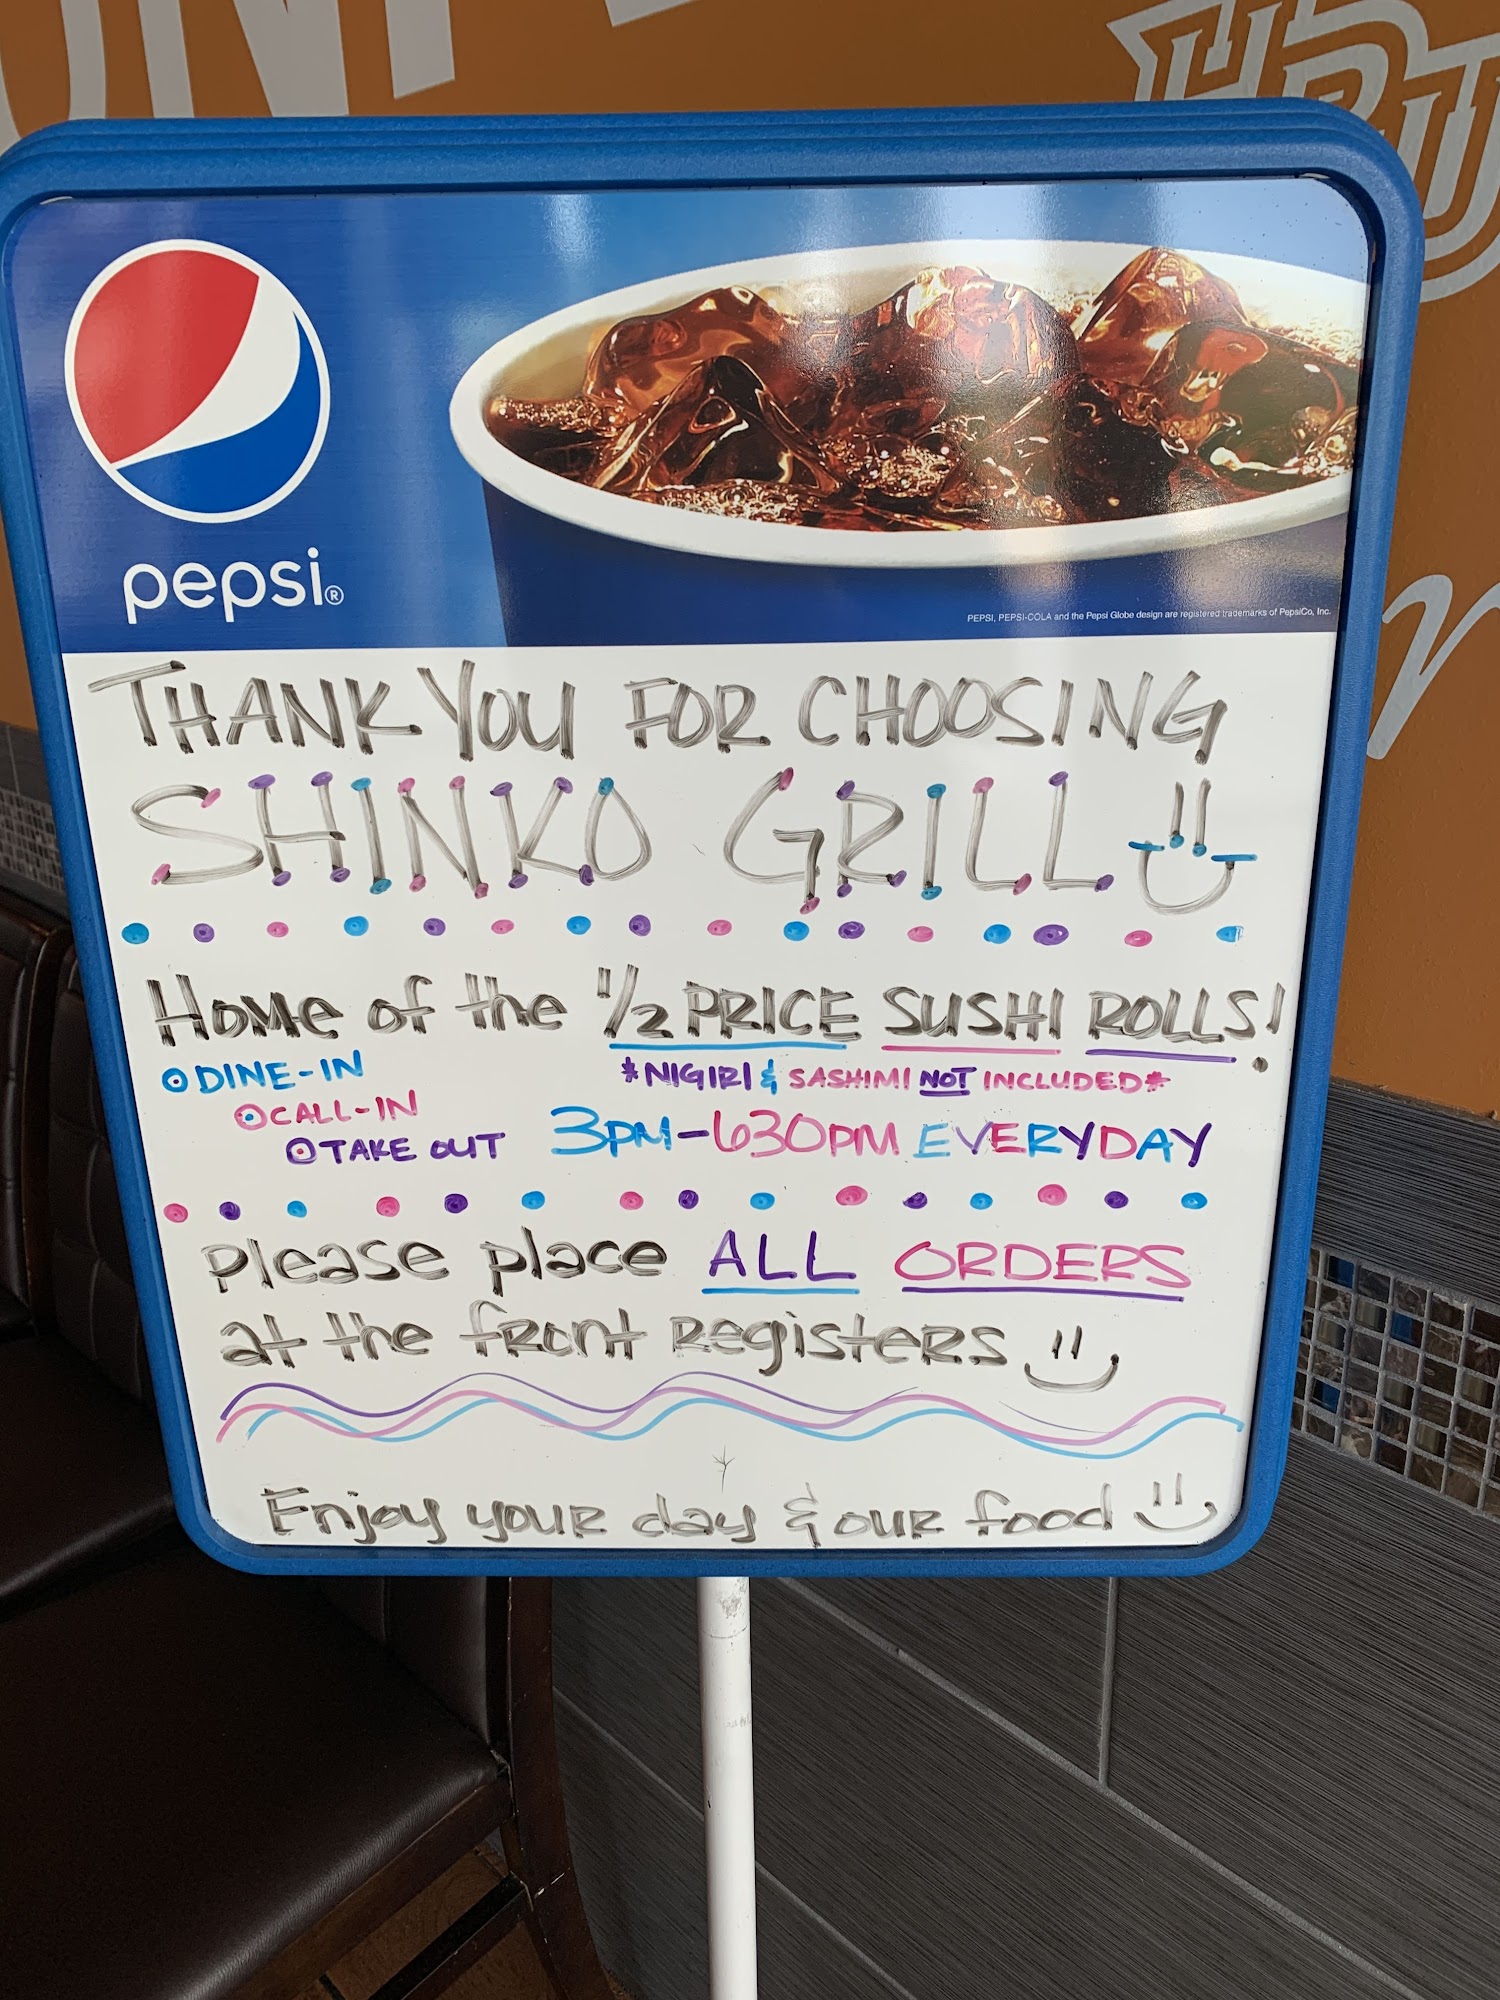 HBU
pepsi®
PEPSI, PEPSI-COLA and the Pepsi Globe design are registered trademarks of PepsiCo, Inc.
THANK YOU FOR CHOOSING
SHINKO GRILL
Home of the 1/2 PRICE SUSHI ROLLS!
DINE-IN
*NIGIRI & SASHIMI NOT INCLUDED*
CALL-IN
TAKE OUT
3PM-630PM EVERYDAY
Please place ALL ORDERS
at the front Registers
Enjoy your day & our food